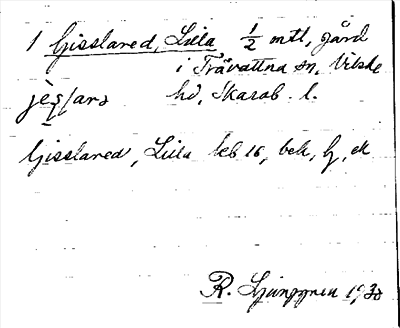 1 Gisslared, Lilla 1/2 mtl, gård
i Trävattna sn, Vilske
hd, Skarab. l.
Gisslared, Lilla leb 16, bek, G, ek
R. Ljunggren 1930